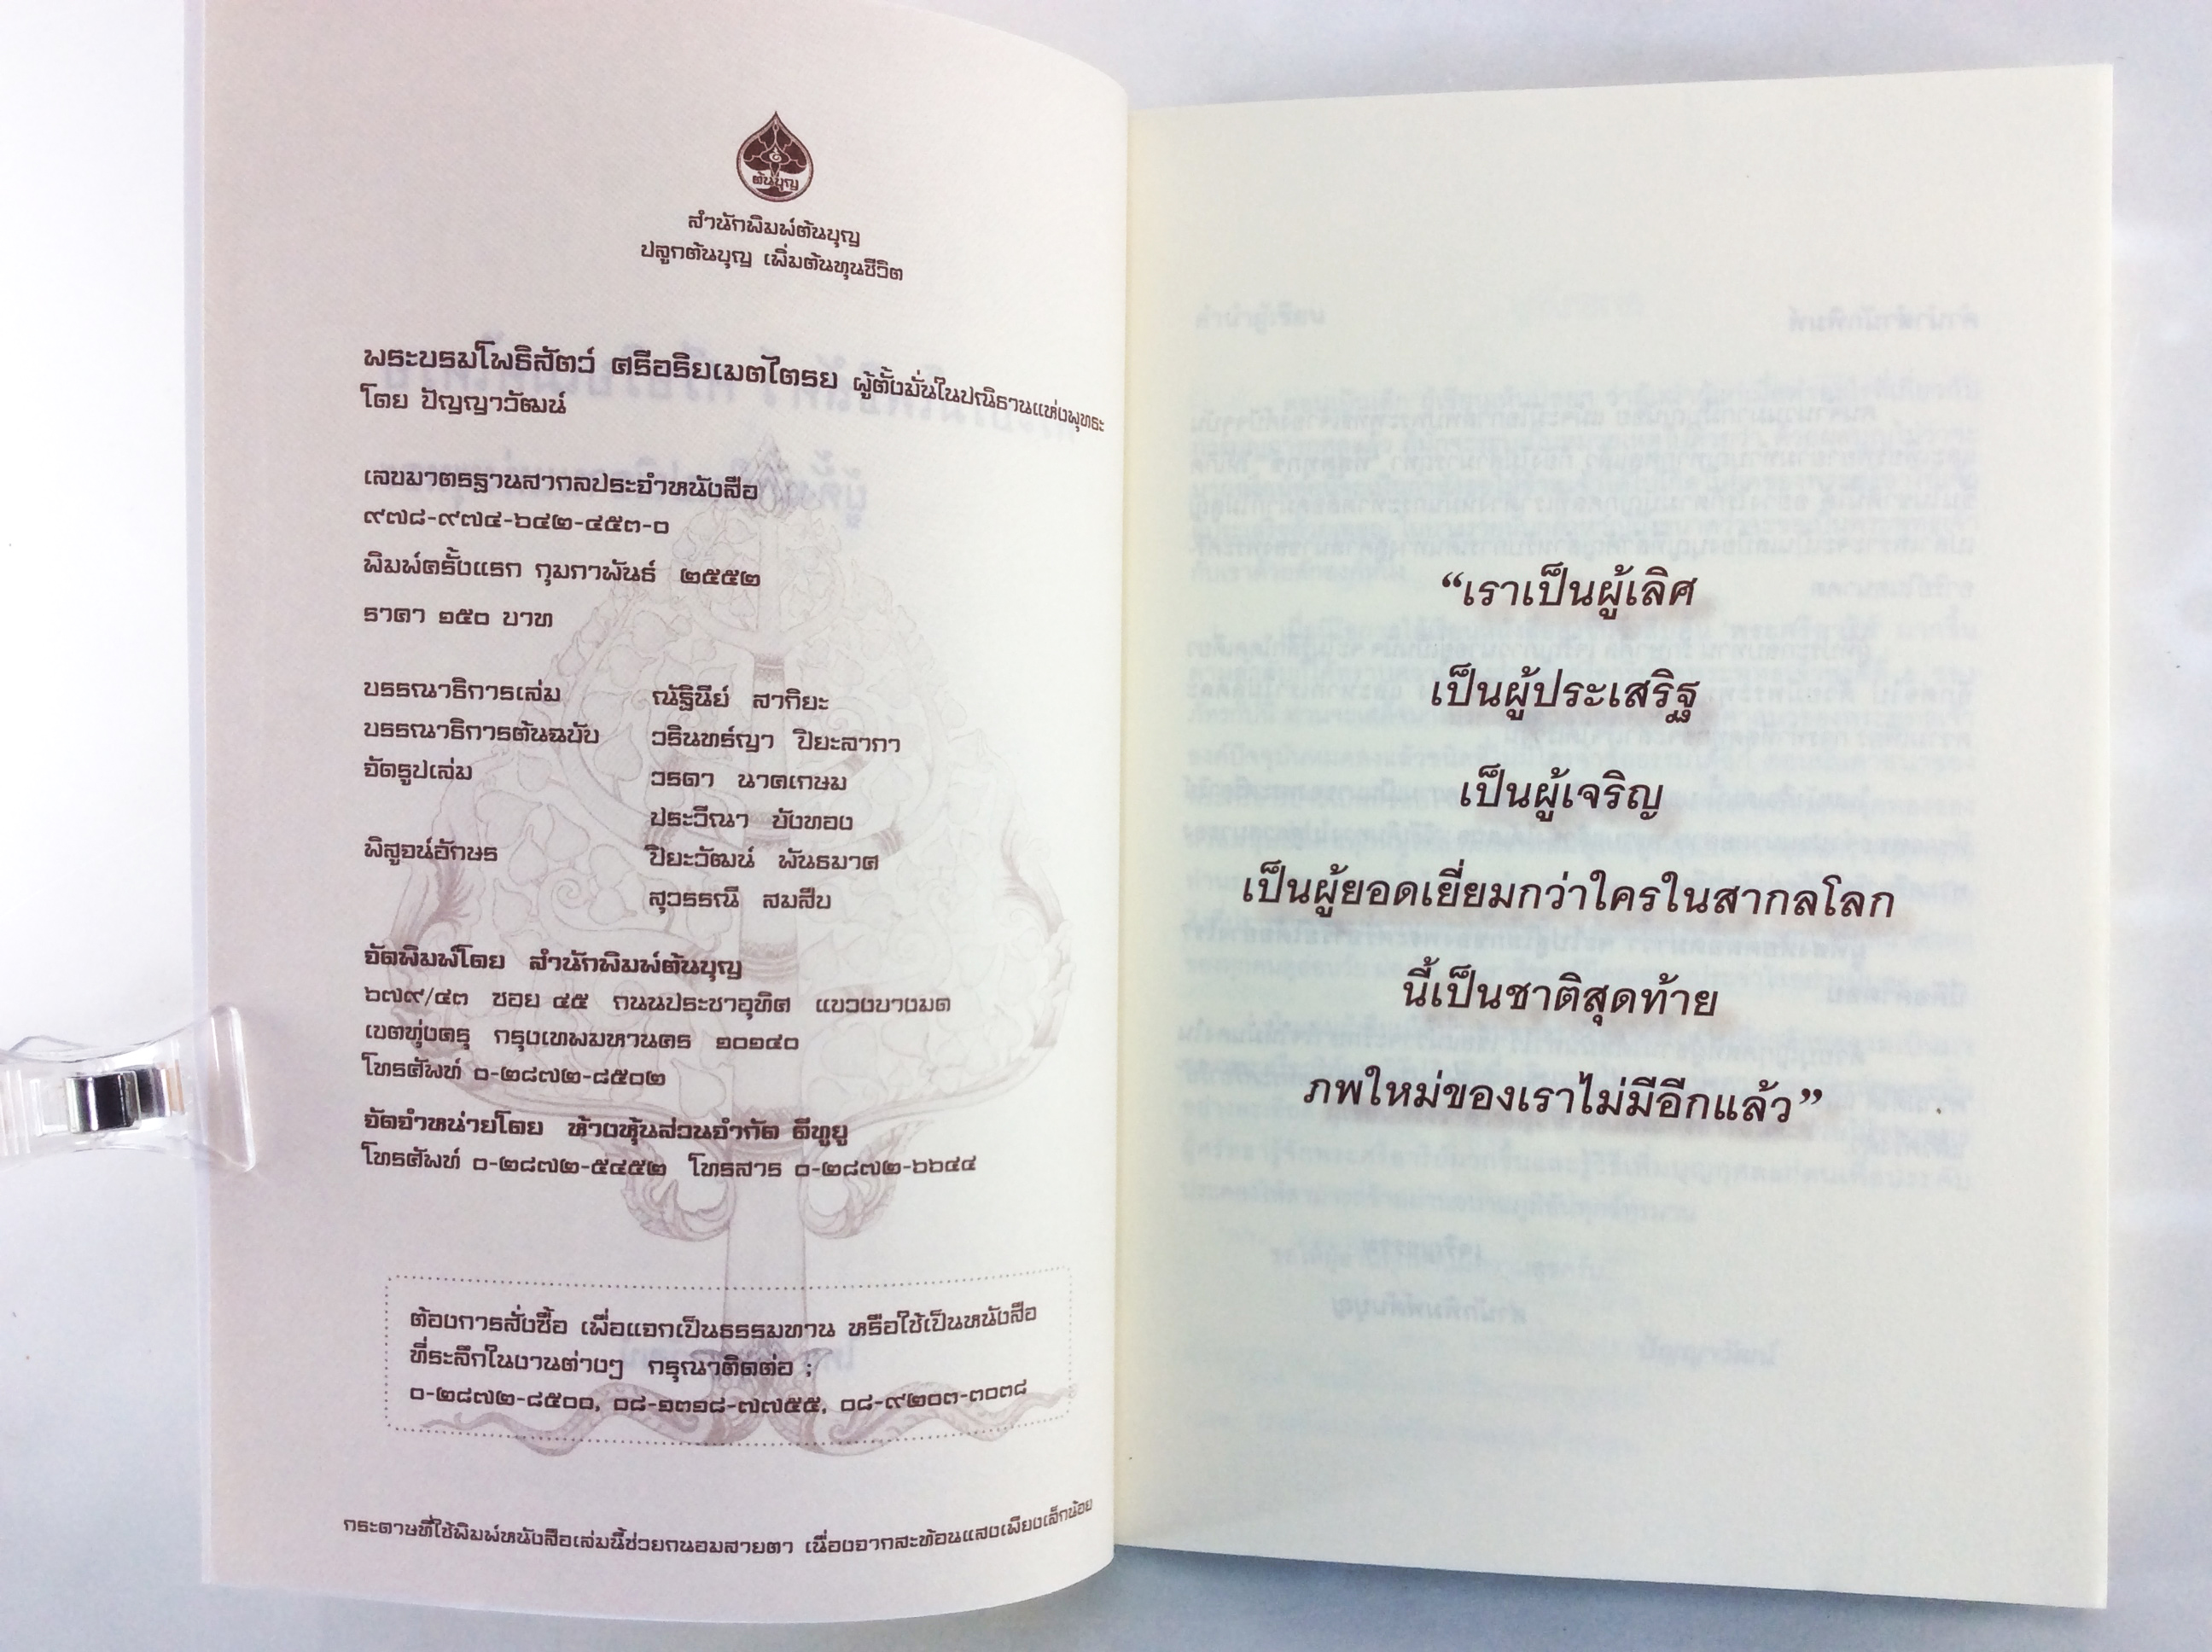 ต้นบุญ
สำนักพิมพ์ต้นบุญ
ปลูกต้นบุญ เพิ่มต้นทุนชีวิต
พระบรมโพธิสัตว์ ศรีอริยเมตไตรย ผู้ตั้งมั่นในปณิธานแห่งพุทธะ
โดย ปัญญาวัฒน์
เลขมาตรฐานสากลประจำหนังสือ
๙๗๘-๙๗๔-๖๔๒-๔๕๓-๐
พิมพ์ครั้งแรก กุมภาพันธ์ ๒๕๕๒
ราคา ๑๕๐ บาท
บรรณาธิการเล่ม ณัฐินีย์ สากิยะ
บรรณาธิการต้นฉบับ วรินทร์ญา ปิยะลาภา
จัดรูปเล่ม วรดา นาคเกษม
ประวีณา บังทอง
พิสูจน์อักษร ปิยะวัฒน์ พันธมาศ
สุวรรณี สมสืบ
จัดพิมพ์โดย สำนักพิมพ์ต้นบุญ
๖๗๙/๔๓ ซอย ๔๕ ถนนประชาอุทิศ แขวงบางมด
เขตทุ่งครุ กรุงเทพมหานคร ๑๐๑๔๐
โทรศัพท์ ๐-๒๘๗๒-๘๕๐๒
จัดจำหน่ายโดย ห้างหุ้นส่วนจำกัด ดีทูยู
โทรศัพท์ ๐-๒๘๗๒-๕๔๕๒ โทรสาร ๐-๒๘๗๒-๖๖๔๔
ต้องการสั่งซื้อ เพื่อแจกเป็นธรรมทาน หรือใช้เป็นหนังสือ
ที่ระลึกในงานต่างๆ กรุณาติดต่อ ;
๐-๒๘๗๒-๘๕๐๐, ๐๘-๑๓๑๘-๗๗๕๕, ๐๘-๙๒๐๓-๓๐๓๘
กระดาษที่ใช้พิมพ์หนังสือเล่มนี้ช่วยถนอมสายตา เนื่องจากสะท้อนแสงเพียงเล็กน้อย
“เราเป็นผู้เลิศ
เป็นผู้ประเสริฐ
เป็นผู้เจริญ
เป็นผู้ยอดเยี่ยมกว่าใครในสากลโลก
นี้เป็นชาติสุดท้าย
ภพใหม่ของเราไม่มีอีกแล้ว”